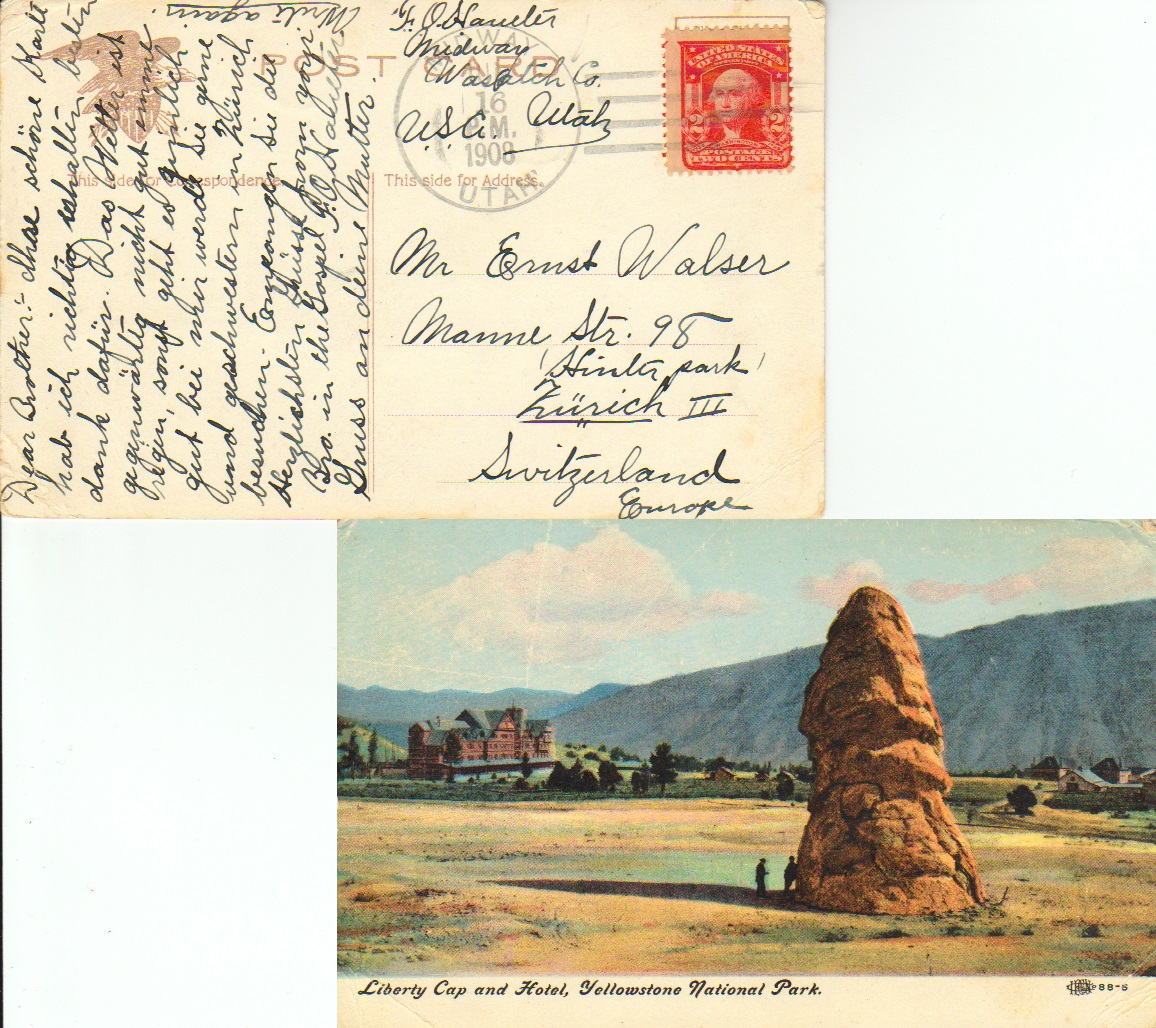 Write again.
F. O. Haueter
Midway
Wasatch Co.
Utah
U.S.A.
POST CARD
MIDWAY
16
P.M.
1908
UTAH
UNITED STATES
OF AMERICA
2 2
POSTAGE
TWO CENTS
This side for Correspondence.
This side for Address.
Dear Brother:- Ihre schöne Karte
hab ich richtig erhalten besten
dank dafür. Das Wetter ist
gegenwärtig nicht gut immer
regen, sonst geht es ziemlich
gut bei mir werde Sie gerne
und geschwestern in Zürich
besuchen. Empfangen Sie die
Herzlichsten Grüsse from your
Bro. in the Gospel F. O. Haueter
Gruss an deine Mutter.
Mr Ernst Walser
Manne Str. 98
(Hinter park)
Zürich III
Switzerland
Europe
Liberty Cap and Hotel, Yellowstone National Park.
88-S